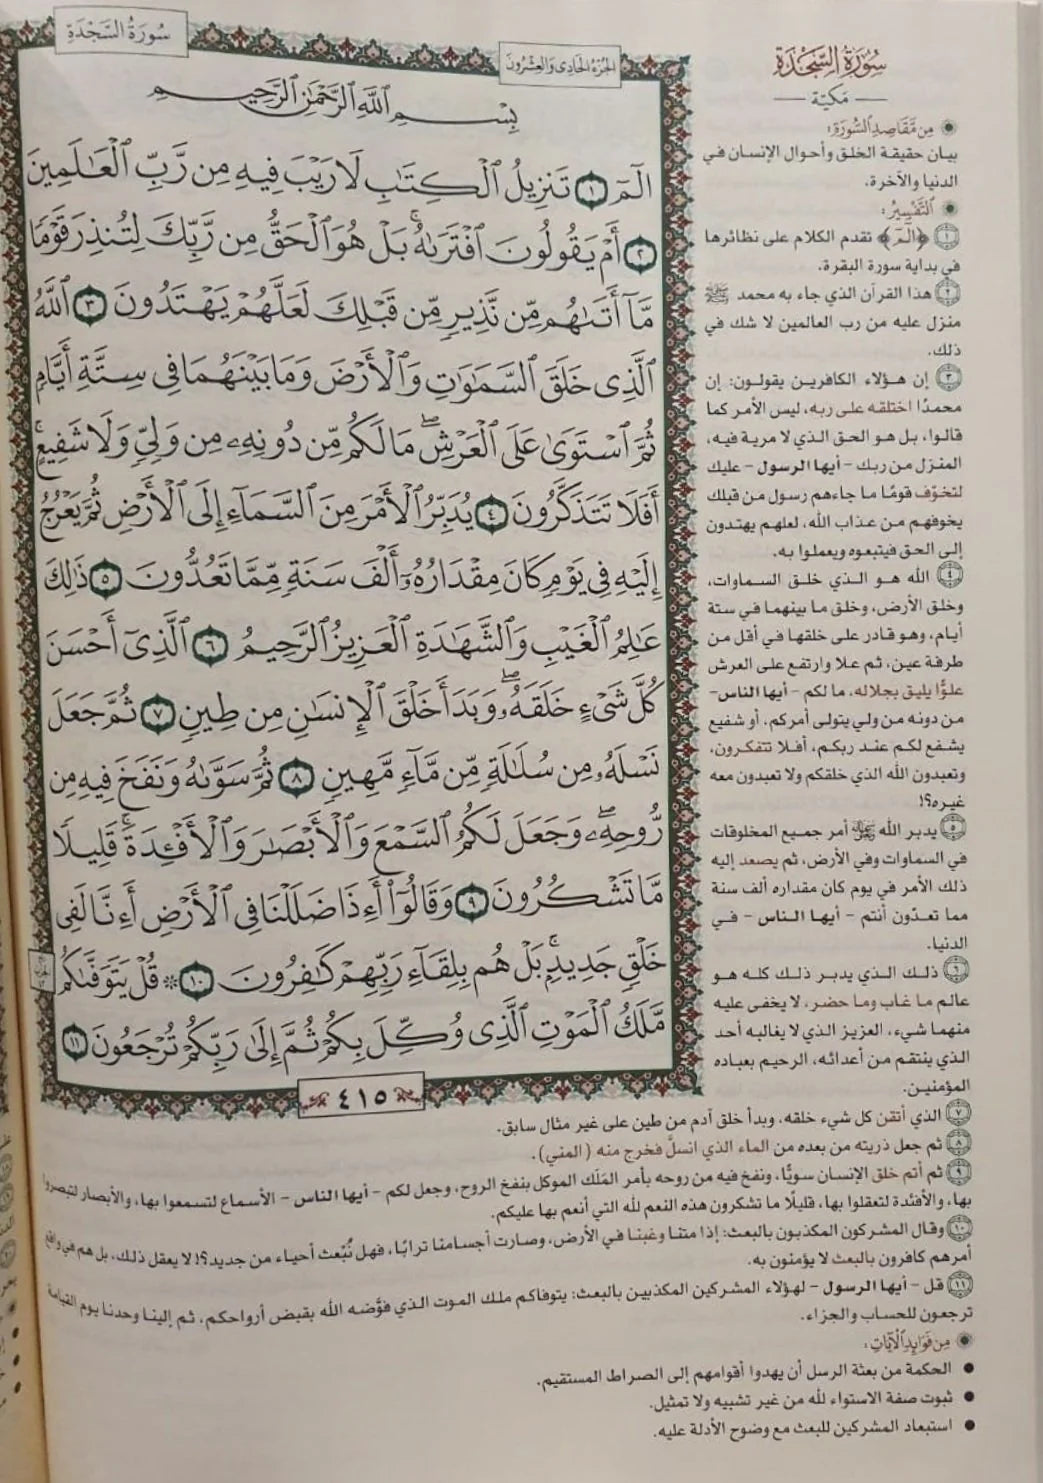 سُورَةُ السَّجْدَةِ
الجُزْءُ الحَادِي وَالعِشْرُونَ
بِسْمِ ٱللَّهِ ٱلرَّحْمَٰنِ ٱلرَّحِيمِ
الٓمٓ ١ تَنزِيلُ ٱلْكِتَٰبِ لَا رَيْبَ فِيهِ مِن رَّبِّ ٱلْعَٰلَمِينَ
٢ أَمْ يَقُولُونَ ٱفْتَرَىٰهُ ۚ بَلْ هُوَ ٱلْحَقُّ مِن رَّبِّكَ لِتُنذِرَ قَوْمًا
مَّآ أَتَىٰهُم مِّن نَّذِيرٍ مِّن قَبْلِكَ لَعَلَّهُمْ يَهْتَدُونَ ٣ ٱللَّهُ
ٱلَّذِى خَلَقَ ٱلسَّمَٰوَٰتِ وَٱلْأَرْضَ وَمَا بَيْنَهُمَا فِى سِتَّةِ أَيَّامٍ
ثُمَّ ٱسْتَوَىٰ عَلَى ٱلْعَرْشِ ۖ مَا لَكُم مِّن دُونِهِۦ مِن وَلِىٍّ وَلَا شَفِيعٍ ۚ
أَفَلَا تَتَذَكَّرُونَ ٤ يُدَبِّرُ ٱلْأَمْرَ مِنَ ٱلسَّمَآءِ إِلَى ٱلْأَرْضِ ثُمَّ يَعْرُجُ
إِلَيْهِ فِى يَوْمٍ كَانَ مِقْدَارُهُۥٓ أَلْفَ سَنَةٍ مِّمَّا تَعُدُّونَ ٥ ذَٰلِكَ
عَٰلِمُ ٱلْغَيْبِ وَٱلشَّهَٰدَةِ ٱلْعَزِيزُ ٱلرَّحِيمُ ٦ ٱلَّذِىٓ أَحْسَنَ
كُلَّ شَىْءٍ خَلَقَهُۥ ۖ وَبَدَأَ خَلْقَ ٱلْإِنسَٰنِ مِن طِينٍ ٧ ثُمَّ جَعَلَ
نَسْلَهُۥ مِن سُلَٰلَةٍ مِّن مَّآءٍ مَّهِينٍ ٨ ثُمَّ سَوَّىٰهُ وَنَفَخَ فِيهِ مِن
رُّوحِهِۦ ۖ وَجَعَلَ لَكُمُ ٱلسَّمْعَ وَٱلْأَبْصَٰرَ وَٱلْأَفْـِٔدَةَ ۚ قَلِيلًا
مَّا تَشْكُرُونَ ٩ وَقَالُوٓا۟ أَءِذَا ضَلَلْنَا فِى ٱلْأَرْضِ أَءِنَّا لَفِى
خَلْقٍ جَدِيدٍۭ ۚ بَلْ هُم بِلِقَآءِ رَبِّهِمْ كَٰفِرُونَ ١٠ ۞ قُلْ يَتَوَفَّىٰكُم
مَّلَكُ ٱلْمَوْتِ ٱلَّذِى وُكِّلَ بِكُمْ ثُمَّ إِلَىٰ رَبِّكُمْ تُرْجَعُونَ ١١
٤١٥
سُورَةُ السَّجْدَةِ
مَكِيّة
مِن مَّقَاصِدِ السُّورَةِ:
بيان حقيقة الخلق وأحوال الإنسان في
الدنيا والآخرة.
التَّفْسِيرُ:
١ ﴿الٓمٓ﴾ تقدم الكلام على نظائرها
في بداية سورة البقرة.
٢ هذا القرآن الذي جاء به محمد ﷺ
منزل عليه من رب العالمين لا شك في
ذلك.
٣ إن هؤلاء الكافرين يقولون: إن
محمدًا اختلقه على ربه، ليس الأمر كما
قالوا، بل هو الحق الذي لا مرية فيه،
المنزل من ربك - أيها الرسول - عليك
لتخوّف قومًا ما جاءهم رسول من قبلك
يخوفهم من عذاب الله، لعلهم يهتدون
إلى الحق فيتبعوه ويعملوا به.
٤ الله هو الذي خلق السماوات،
وخلق الأرض، وخلق ما بينهما في ستة
أيام، وهو قادر على خلقها في أقل من
طرفة عين، ثم علا وارتفع على العرش
علوًّا يليق بجلاله، ما لكم - أيها الناس-
من دونه من ولي يتولى أمركم، أو شفيع
يشفع لكم عند ربكم، أفلا تتفكرون،
وتعبدون الله الذي خلقكم ولا تعبدون معه
غيره؟!
٥ يدبر الله أمر جميع المخلوقات
في السماوات وفي الأرض، ثم يصعد إليه
ذلك الأمر في يوم كان مقداره ألف سنة
مما تعدّون أنتم - أيها الناس - في
الدنيا.
٦ ذلك الذي يدبر ذلك كله هو
عالم ما غاب وما حضر، لا يخفى عليه
منهما شيء، العزيز الذي لا يغالبه أحد
الذي ينتقم من أعدائه، الرحيم بعباده
المؤمنين.
٧ الذي أتقن كل شيء خلقه، وبدأ خلق آدم من طين على غير مثال سابق.
٨ ثم جعل ذريته من بعده من الماء الذي انسلَّ فخرج منه (المني).
٩ ثم أتم خلق الإنسان سويًّا، ونفخ فيه من روحه بأمر المَلَك الموكل بنفخ الروح، وجعل لكم - أيها الناس - الأسماع لتسمعوا بها، والأبصار لتبصروا
بها، والأفئدة لتعقلوا بها، قليلًا ما تشكرون هذه النعم لله التي أنعم بها عليكم.
١٠ وقال المشركون المكذبون بالبعث: إذا متنا وغبنا في الأرض، وصارت أجسامنا ترابًا، فهل نُبْعث أحياء من جديد؟! لا يعقل ذلك، بل هم في واقع
أمرهم كافرون بالبعث لا يؤمنون به.
١١ قل - أيها الرسول - لهؤلاء المشركين المكذبين بالبعث: يتوفاكم ملك الموت الذي فوَّضه الله بقبض أرواحكم، ثم إلينا وحدنا يوم القيامة
ترجعون للحساب والجزاء.
مِن فَوَائِدِ الْآيَاتِ:
الحكمة من بعثة الرسل أن يهدوا أقوامهم إلى الصراط المستقيم.
ثبوت صفة الاستواء لله من غير تشبيه ولا تمثيل.
استبعاد المشركين للبعث مع وضوح الأدلة عليه.